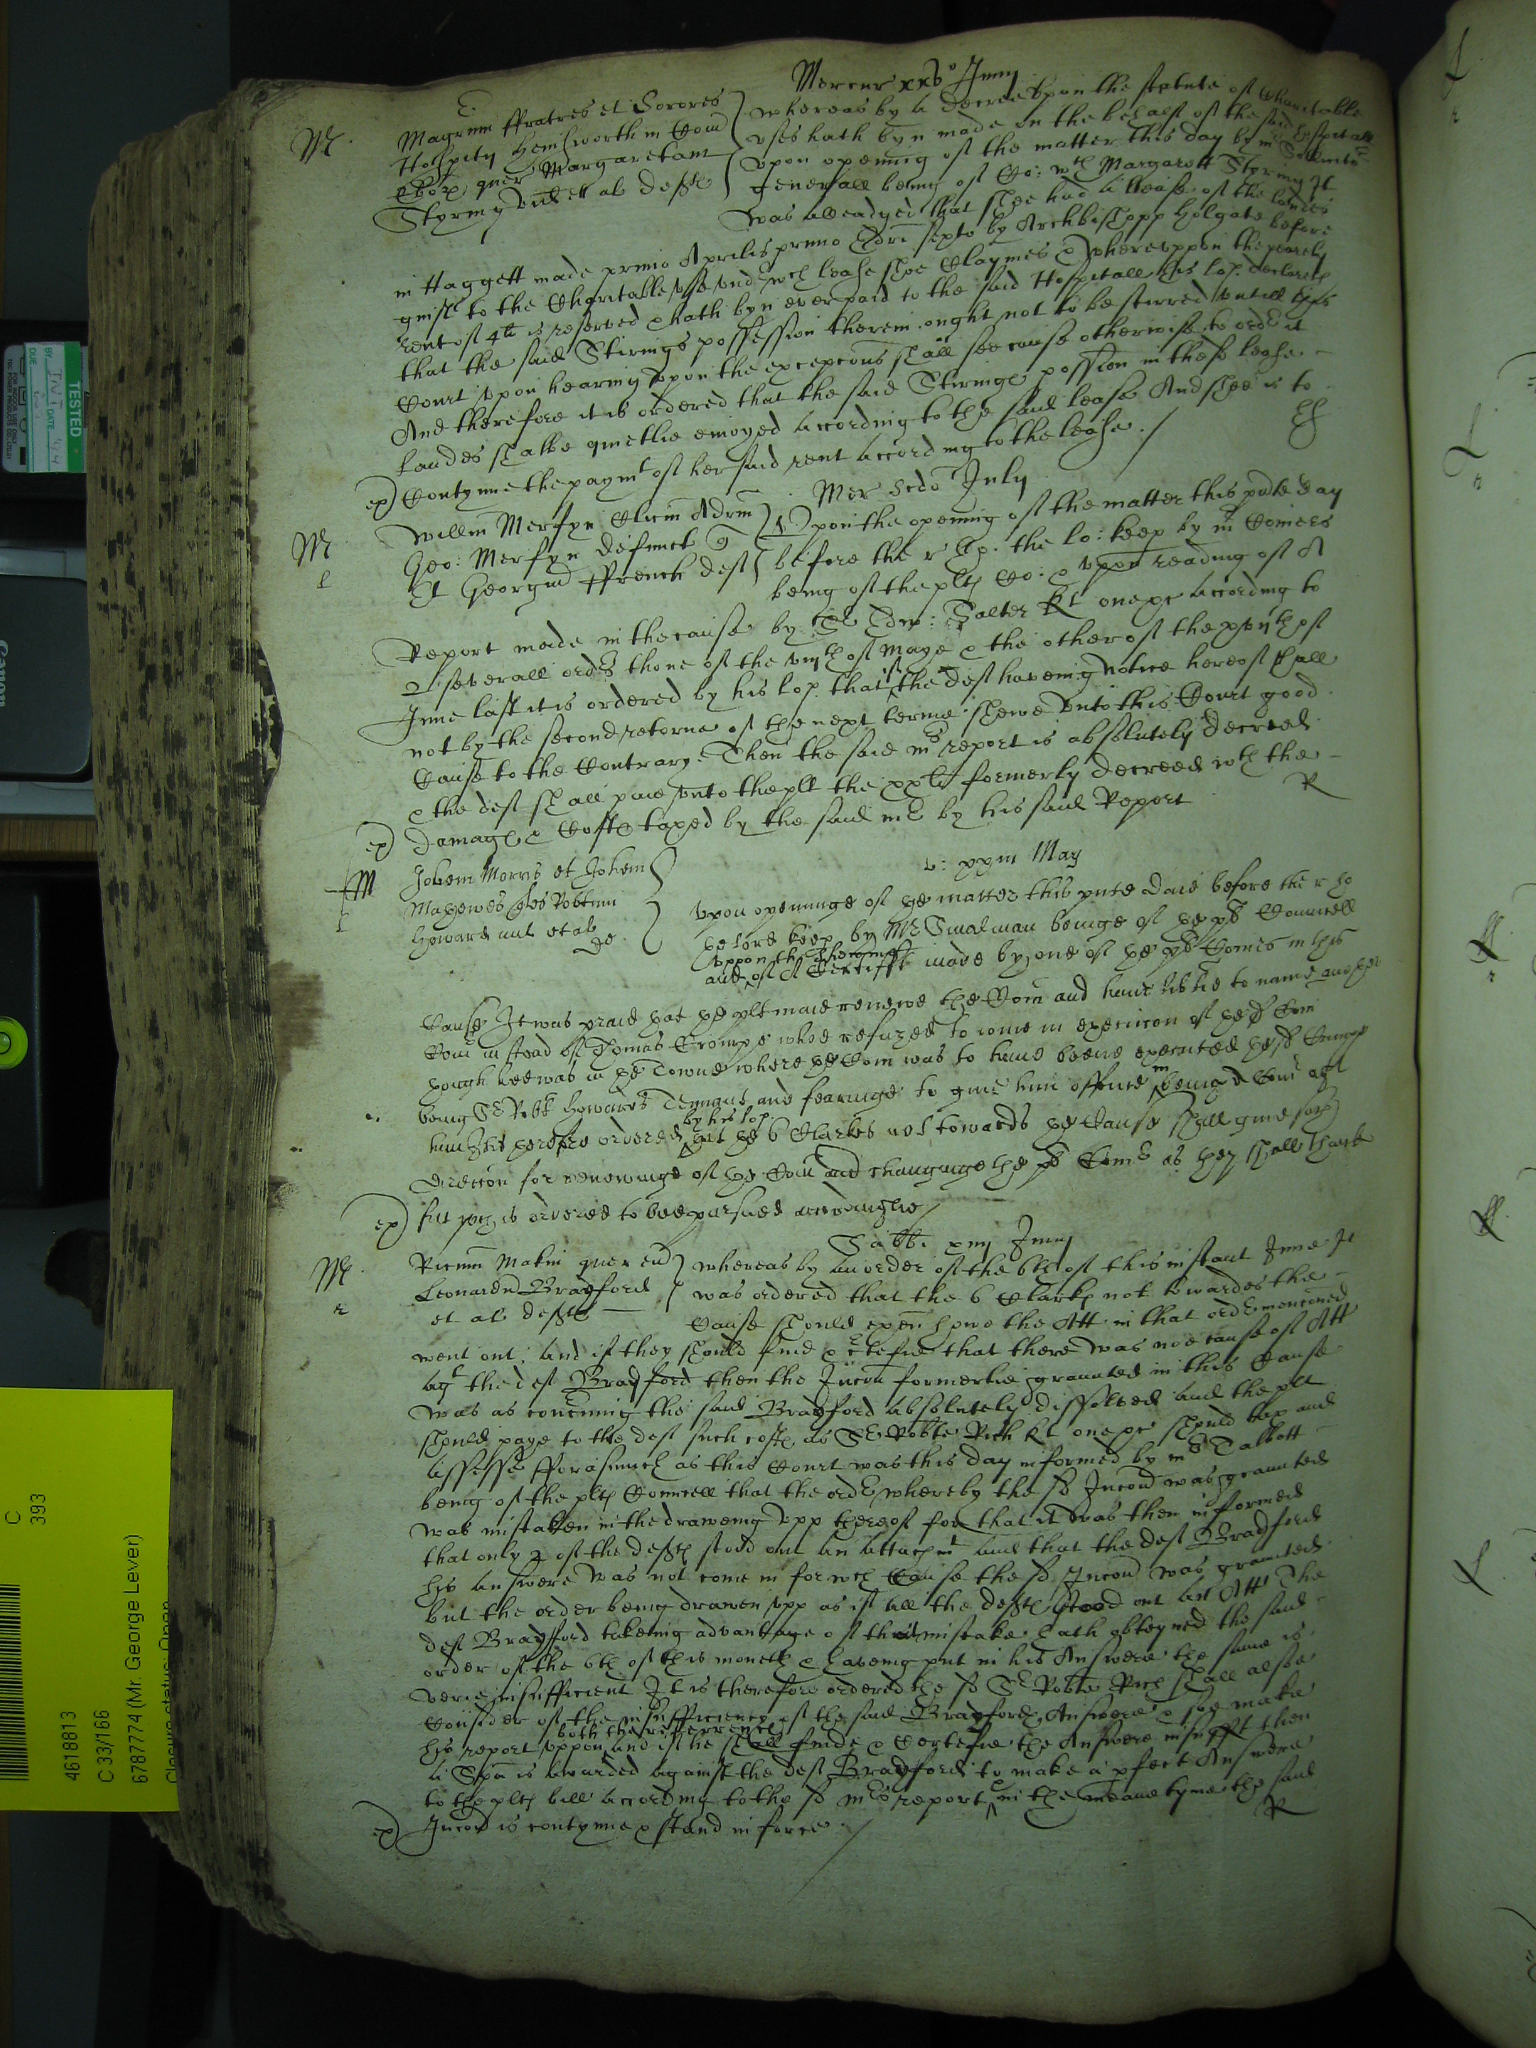 Mercur xxvo Junij
M
Magrum ffratres et Sorores
Hospity Hemsworth in Com
Ebor quer Margaretam
Styrming vid et al defte
whereas by a decree vpon the statute of Charitable
vses hath byn made on the behalf of the said Hospitall
vpon opening of the matter this day by mr Sollicitor
generall being of Co: wth Margarett Styrming It
was alleadged that shee had a lease of the landes
in Haggett made primo Aprilis primo Edri sexto by Archbishopp Holgate before
guift to the Charitable vse vnd wch lease shee claymes & wherevppon the yearely
rent of 4li is reserved & hath byn ever paid to the said Hospitall his lop. declareth
that the said Stirings possession therein ought not to be stirred vntill this
Court vpon hearing vpon the excepcons shall see cause otherwise to order it
And therefore it is ordered that the said Stiringe possion in these lease
landes shalbe quietlie enioyed according to the said lease And shee is to
ex) Contynue the paymt of her said rent according to the lease. /
Mer scdo July
M
Willm Mersyn Clicm Admr
Geo: Mersyn defunct q
Et Georgiu ffrench deft
Vpon the opening of the matter this pnte day
before the r Ho. the lo: keep by mr Comers
being of the plts Co: & vpon reading of A
Report made in the cause by Sr Edw: Salter Kt one &c according to
2 severall ordrs thone of the viijth of Maye & the other of the xxvijth of
June last it is ordered by his lop. that if the deft haveing notice hereof shall
not by the second retorne of the next terme shewe vnto this Court good
Cause to the Contrary. Then the said mrs report is absolutely decreed
& the deft shall paie vnto the plt the xxli formerly decreed wth the
ex) damage & Costs taxed by the said mr by his said Report
R
v: xxiij May
M
Johem Morris et Johem
Mathewes Robtum
Howard mil et al
de.
Vpon openinge of the matter this pnte daie before the r ho
the lord keep by Mr Smalman beinge of the pls Councell
vppon the shewing
and of A Certifft made by one of the pls Comrs in this
Cause It was praid that the plt maie renewe the Com and have libtie to name another
Comr in stead of Thomas Crompe who refuzed to ioine in execucon of the sd Com
though hee was in the Towne where the Com was to have beene executed the sd Crompe
being Sr Robt Howards Tennant and fearinge to give him offence in being a Comr agt
by his lop.
him It is therefore ordered that the 6 Clarkes not towards the Cause shall give such
direccon for renewinge of the Com and chaunginge the pls Comrs as they shall thinke
ex) fitt wch is ordered to bee pursued accordinglie /
Sabbi xiij Junij
M
Ricum Makin quer
Leonardu Bradford
et al defte
whereas by an order of the 6th of this instant June It
was ordered that the 6 Clarks not towardes the
Cause should exam howe the Att in that ordr mencioned
went out, and if they should find & certefie that there was noe cause of Att
agt the deft Bradford then the Iniucon formerlie graunted in this Cause
was as concerning the said Bradford absolutely dissolved and the plt
should paye to the deft such costs as Sr Robte Rich Kt one &c should tax and
assesse fforasmuch as this Court was this day informed by mr Talbott
being of the plts Councell that the ordr whereby the sd Iniucon was graunted
was mistaken in the draweing vpp thereof for that it was then informed
that only 2 of the defts stood out an attachmt and that the deft Bradford
his answere was not come in for wch Cause the sd Iniucon was graunted
but the order being drawen vpp as if all the defts stood out an Att The
deft Bradford takeing advantage of that mistake hath obteyned the said
order of the 6th of this moneth & haveing put in his Answere the same is
verie insufficient It is therefore ordered the sd Sr Robte Rich shall alsoe
Consider of the insufficiency of the said Bradfords Answere & soe make
both the references
his report vppon and if he shall finde & certefie the Answere insufft then
a Spa is awarded against the deft Bradford to make a pfect Answere
to the plts bill according to the sd mrs report & in the meane tyme the said
ex) Iniucon is contynue & stand in force. /
R
TESTED
BY INT DATE
DUE
Canon
C
393
4618813
C 33/166
6787774 (Mr. George Lever)
Closure status: Open